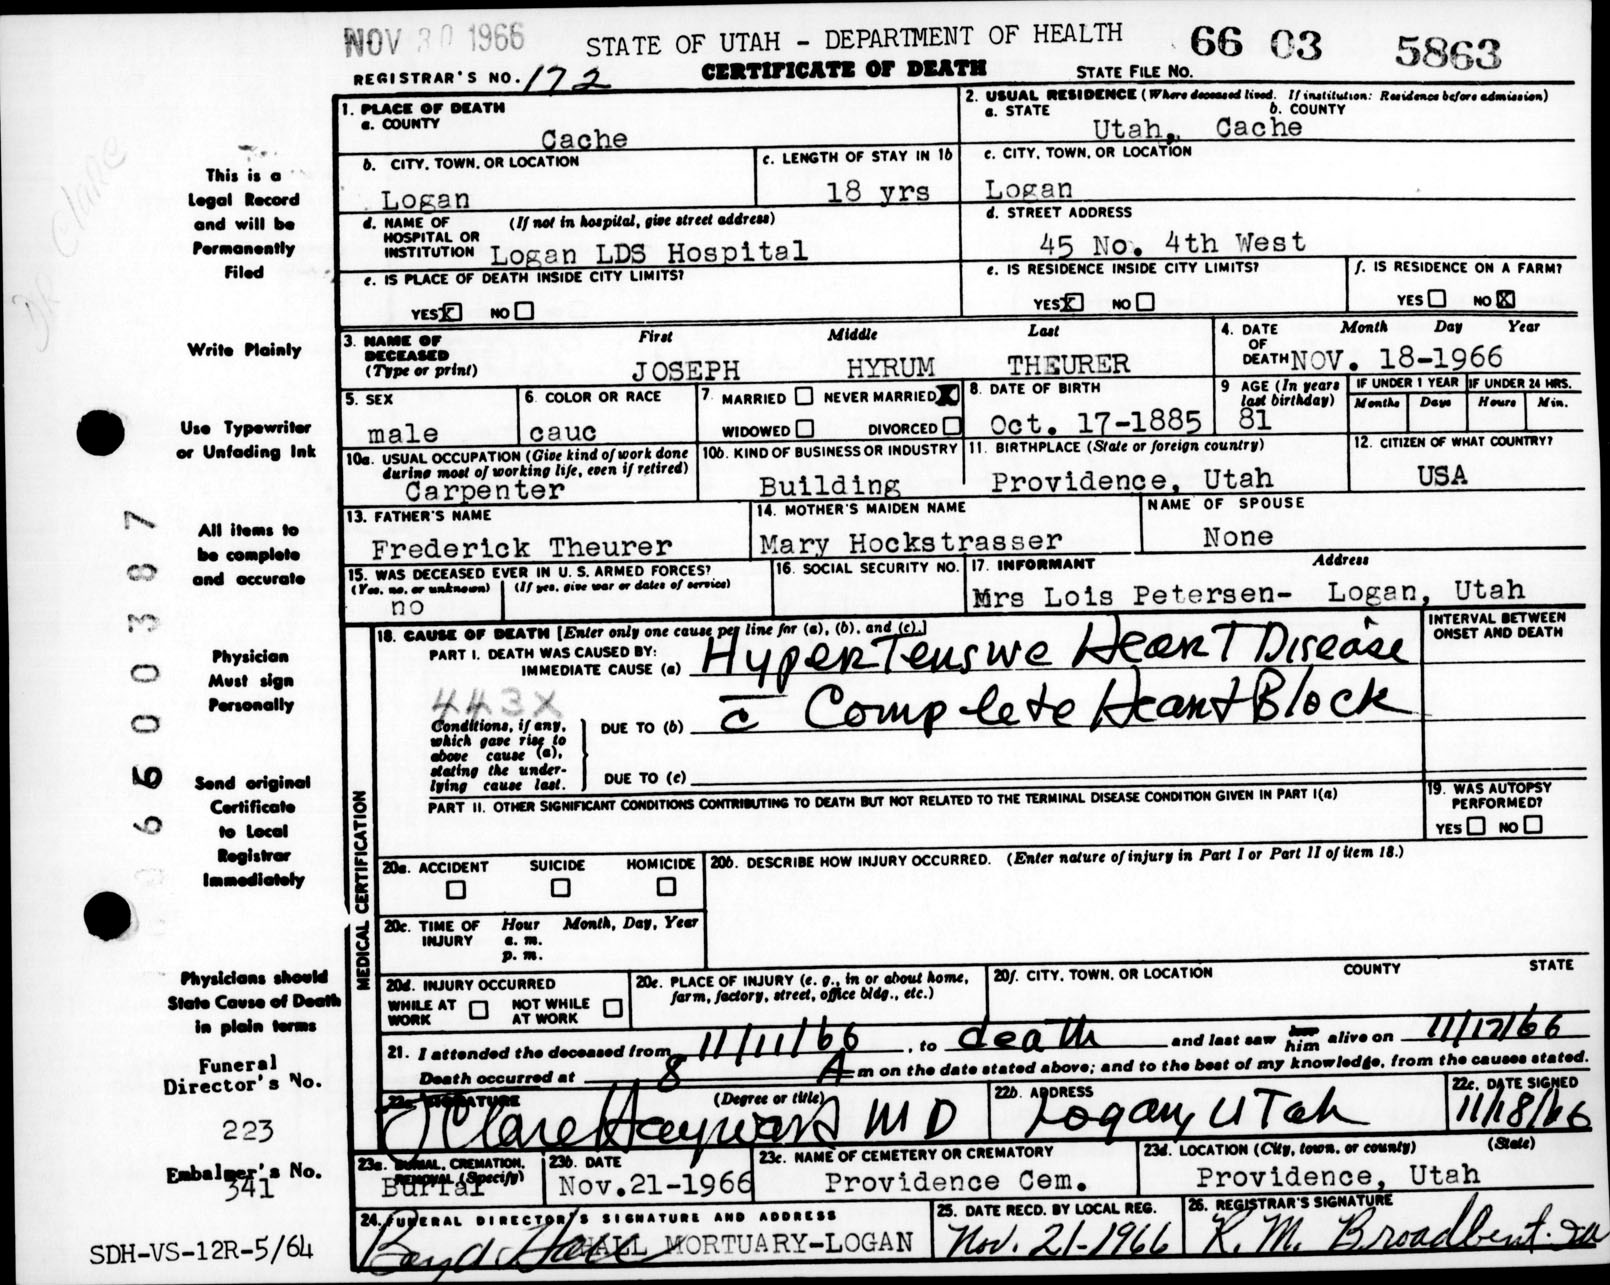 NOV 30 1966
STATE OF UTAH - DEPARTMENT OF HEALTH
66 03 5863
REGISTRAR'S NO. 172
CERTIFICATE OF DEATH
STATE FILE NO.
DR Clare
This is a
Legal Record
and will be
Permanently
Filed
Write Plainly
Use Typewriter
or Unfading Ink
All items to
be complete
and accurate
Physician
Must sign
Personally
Send original
Certificate
to Local
Registrar
Immediately
Physicians should
State Cause of Death
in plain terms
Funeral
Director's No.
223
Embalmer's No.
341
SDH-VS-12R-5/64
9 6 6 0 0 3 8 7
1. PLACE OF DEATH
a. COUNTY
Cache
2. USUAL RESIDENCE (Where deceased lived. If institution: Residence before admission)
a. STATE b. COUNTY
Utah, Cache
b. CITY, TOWN, OR LOCATION
Logan
c. LENGTH OF STAY IN 1b
18 yrs
c. CITY, TOWN, OR LOCATION
Logan
d. NAME OF (If not in hospital, give street address)
HOSPITAL OR
INSTITUTION Logan LDS Hospital
d. STREET ADDRESS
45 No. 4th West
e. IS PLACE OF DEATH INSIDE CITY LIMITS?
YES X NO
e. IS RESIDENCE INSIDE CITY LIMITS?
YES X NO
f. IS RESIDENCE ON A FARM?
YES NO X
3. NAME OF First Middle Last
DECEASED
(Type or print) JOSEPH HYRUM THEURER
4. DATE Month Day Year
OF
DEATH NOV. 18-1966
5. SEX
male
6. COLOR OR RACE
cauc
7. MARRIED NEVER MARRIED X
WIDOWED DIVORCED
8. DATE OF BIRTH
Oct. 17-1885
9 AGE (In years
last birthday)
81
IF UNDER 1 YEAR IF UNDER 24 HRS.
Months Days Hours Min.
10a. USUAL OCCUPATION (Give kind of work done
during most of working life, even if retired)
Carpenter
10b. KIND OF BUSINESS OR INDUSTRY
Building
11. BIRTHPLACE (State or foreign country)
Providence, Utah
12. CITIZEN OF WHAT COUNTRY?
USA
13. FATHER'S NAME
Frederick Theurer
14. MOTHER'S MAIDEN NAME
Mary Hockstrasser
NAME OF SPOUSE
None
15. WAS DECEASED EVER IN U. S. ARMED FORCES?
(Yes, no, or unknown) (If yes, give war or dates of service)
no
16. SOCIAL SECURITY NO.
17. INFORMANT Address
Mrs Lois Petersen- Logan, Utah
MEDICAL CERTIFICATION
18. CAUSE OF DEATH [Enter only one cause per line for (a), (b), and (c).]
INTERVAL BETWEEN
ONSET AND DEATH
PART I. DEATH WAS CAUSED BY:
IMMEDIATE CAUSE (a) Hypertensive Heart Disease
443X
Conditions, if any,
which gave rise to
above cause (a),
stating the under-
lying cause last.
DUE TO (b) c̄ Complete Heart Block
DUE TO (c)
PART II. OTHER SIGNIFICANT CONDITIONS CONTRIBUTING TO DEATH BUT NOT RELATED TO THE TERMINAL DISEASE CONDITION GIVEN IN PART I(a)
19. WAS AUTOPSY
PERFORMED?
YES NO
20a. ACCIDENT SUICIDE HOMICIDE
20b. DESCRIBE HOW INJURY OCCURRED. (Enter nature of injury in Part I or Part II of item 18.)
20c. TIME OF Hour Month, Day, Year
INJURY a. m.
p. m.
20d. INJURY OCCURRED
WHILE AT NOT WHILE
WORK AT WORK
20e. PLACE OF INJURY (e. g., in or about home,
farm, factory, street, office bldg., etc.)
20f. CITY, TOWN, OR LOCATION COUNTY STATE
21. I attended the deceased from 11/11/66, to death and last saw her him alive on 11/17/66
Death occurred at 8 A m on the date stated above; and to the best of my knowledge, from the causes stated.
22a. SIGNATURE (Degree or title)
J Clare Hayward MD
22b. ADDRESS
Logan, Utah
22c. DATE SIGNED
11/18/66
23a. BURIAL, CREMATION,
REMOVAL (Specify)
Burial
23b. DATE
Nov.21-1966
23c. NAME OF CEMETERY OR CREMATORY
Providence Cem.
23d. LOCATION (City, town, or county) (State)
Providence, Utah
24. FUNERAL DIRECTOR'S SIGNATURE AND ADDRESS
Boyd Hall HALL MORTUARY-LOGAN
25. DATE RECD. BY LOCAL REG.
Nov. 21-1966
26. REGISTRAR'S SIGNATURE
R. M. Broadbent